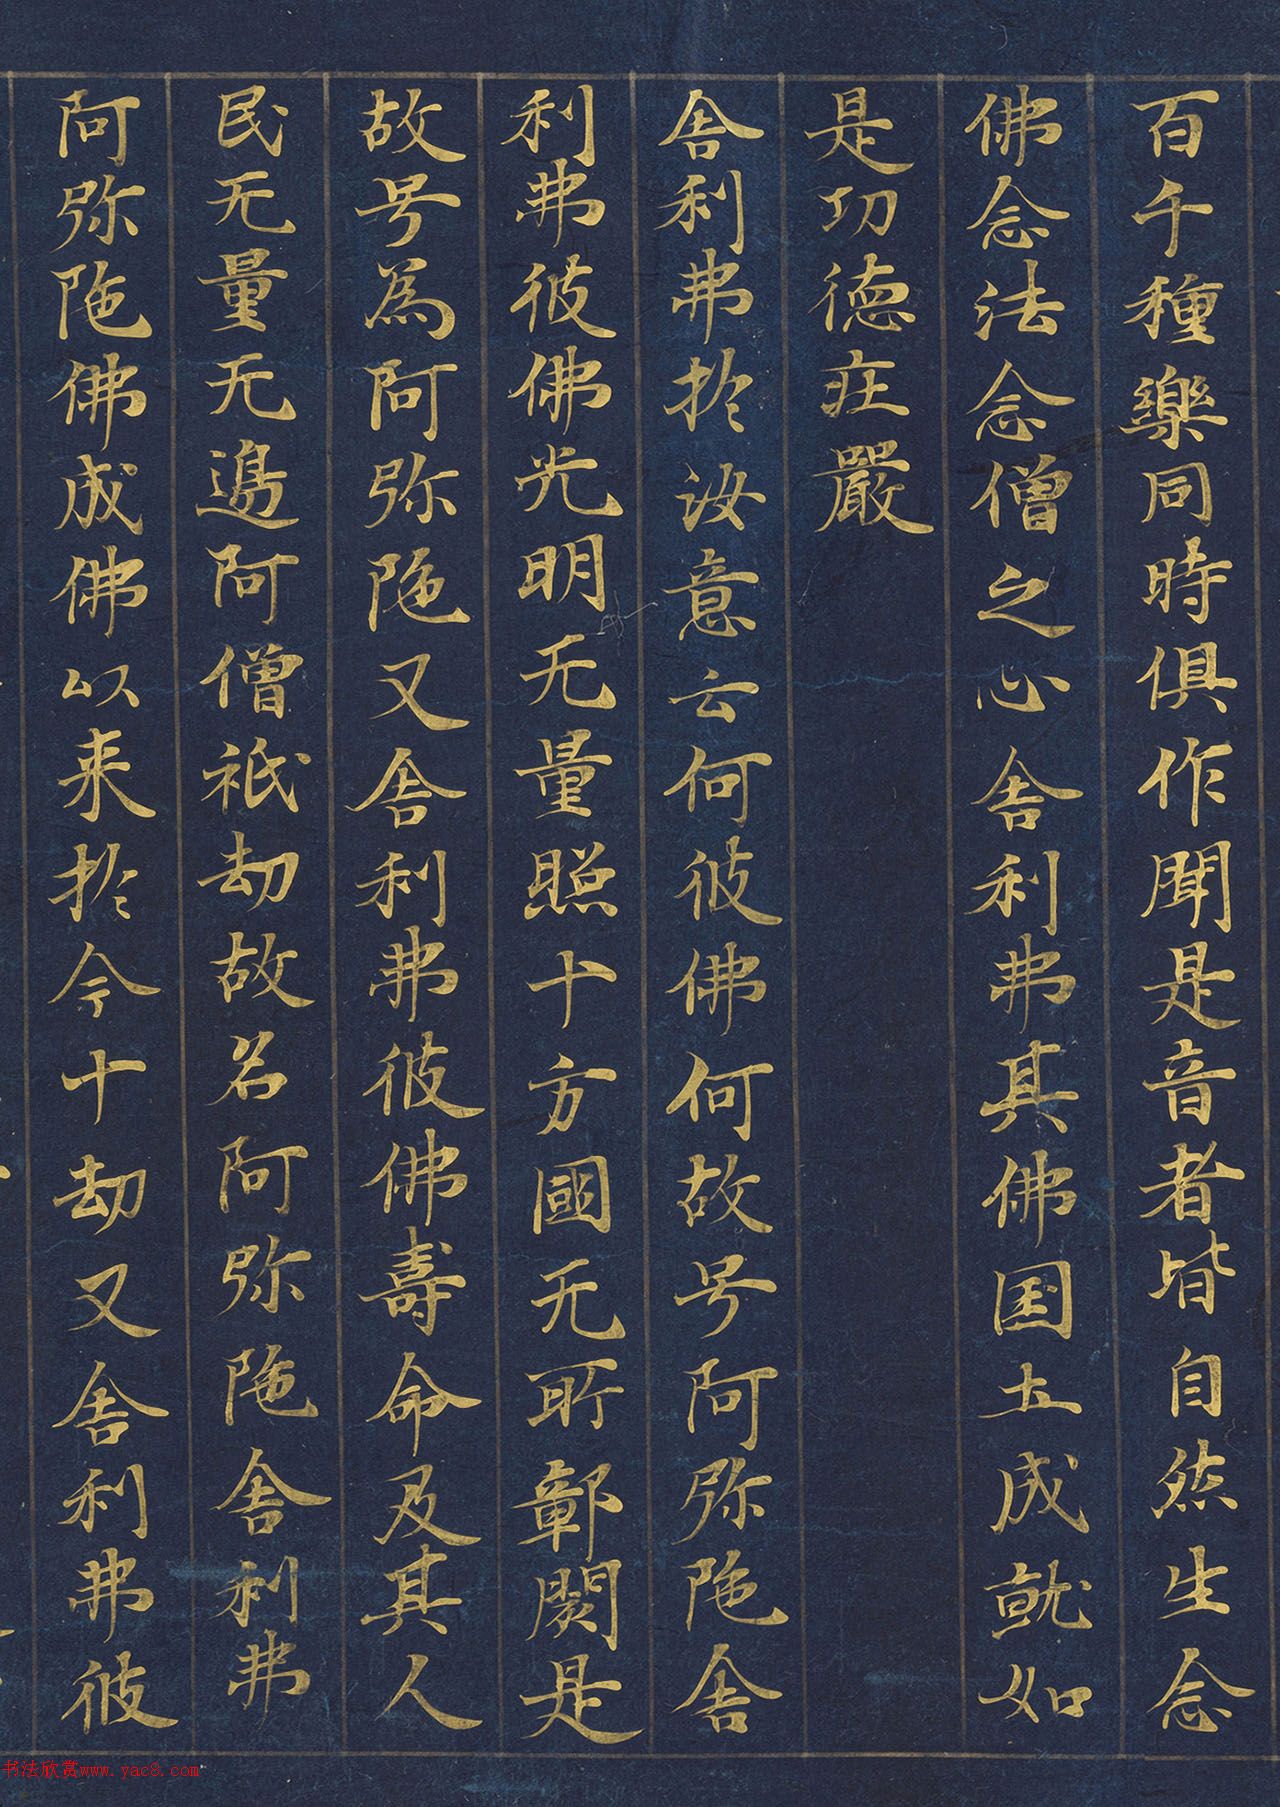 百千種樂同時俱作聞是音者皆自然生念
佛念法念僧之心舍利弗其佛国土成就如
是功德庄嚴
舍利弗扵汝意云何彼佛何故号阿弥陁舍
利弗彼佛光明无量照十方國无所鄣閡是
故号為阿弥陁又舍利弗彼佛壽命及其人
民无量无邊阿僧祇劫故名阿弥陁舍利弗
阿弥陁佛成佛以来扵今十劫又舍利弗彼
书法欣赏www.yac8.com